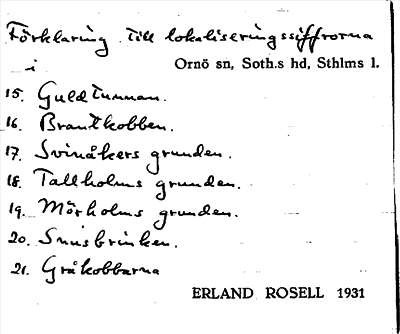 Förklaring till lokaliseringssiffrorna
i
Ornö sn, Soth.s hd, Sthlms l.
15. Guldtunnan.
16. Brantkobben.
17. Svinåkers grunden.
18. Tallholms grunden.
19. Mörholms grunden.
20. Snusbrinken.
21. Gråkobbarna
ERLAND ROSELL 1931